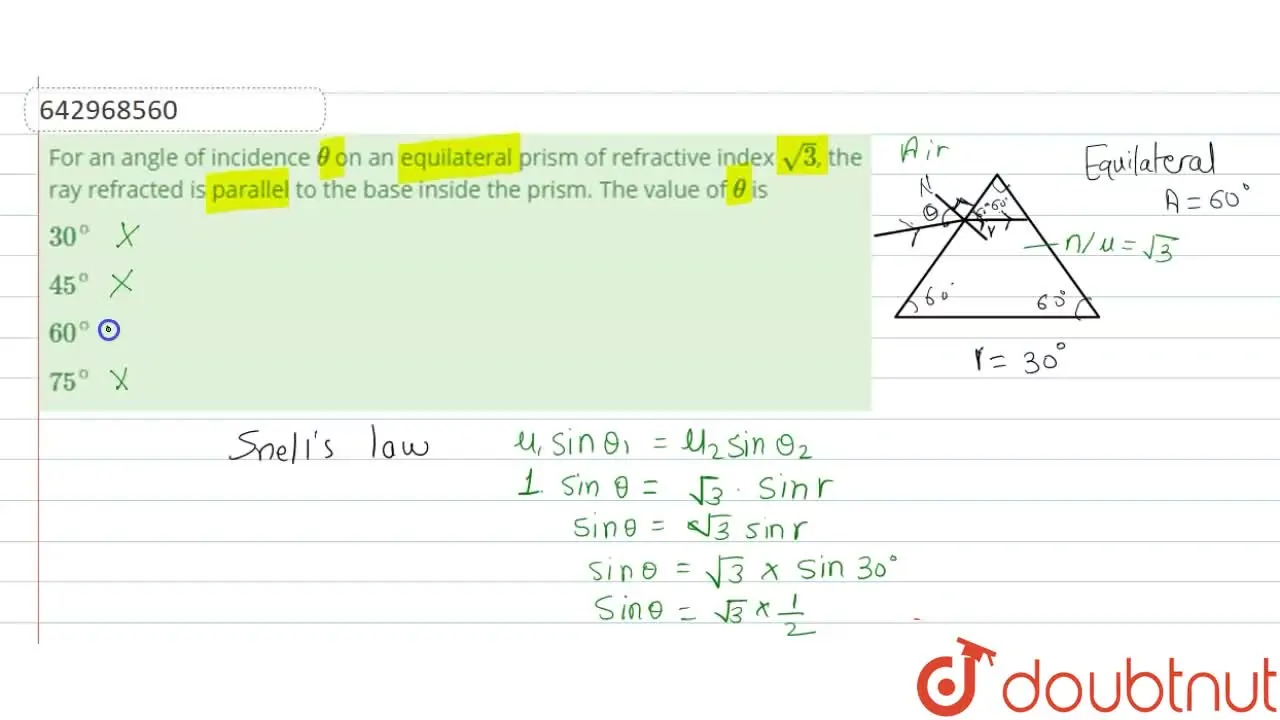 642968560
For an angle of incidence θ on an equilateral prism of refractive index √3, the
ray refracted is parallel to the base inside the prism. The value of θ is
30° X
45° X
60°
75° X
Air
Equilateral
A = 60°
N
θ
60°
r
n/μ = √3
60°
60°
r = 30°
Snell's law
μ₁ sin θ₁ = μ₂ sin θ₂
1. sin θ = √3 . sin r
sin θ = √3 sin r
sin θ = √3 × sin 30°
Sin θ = √3 × 1/2
doubtnut